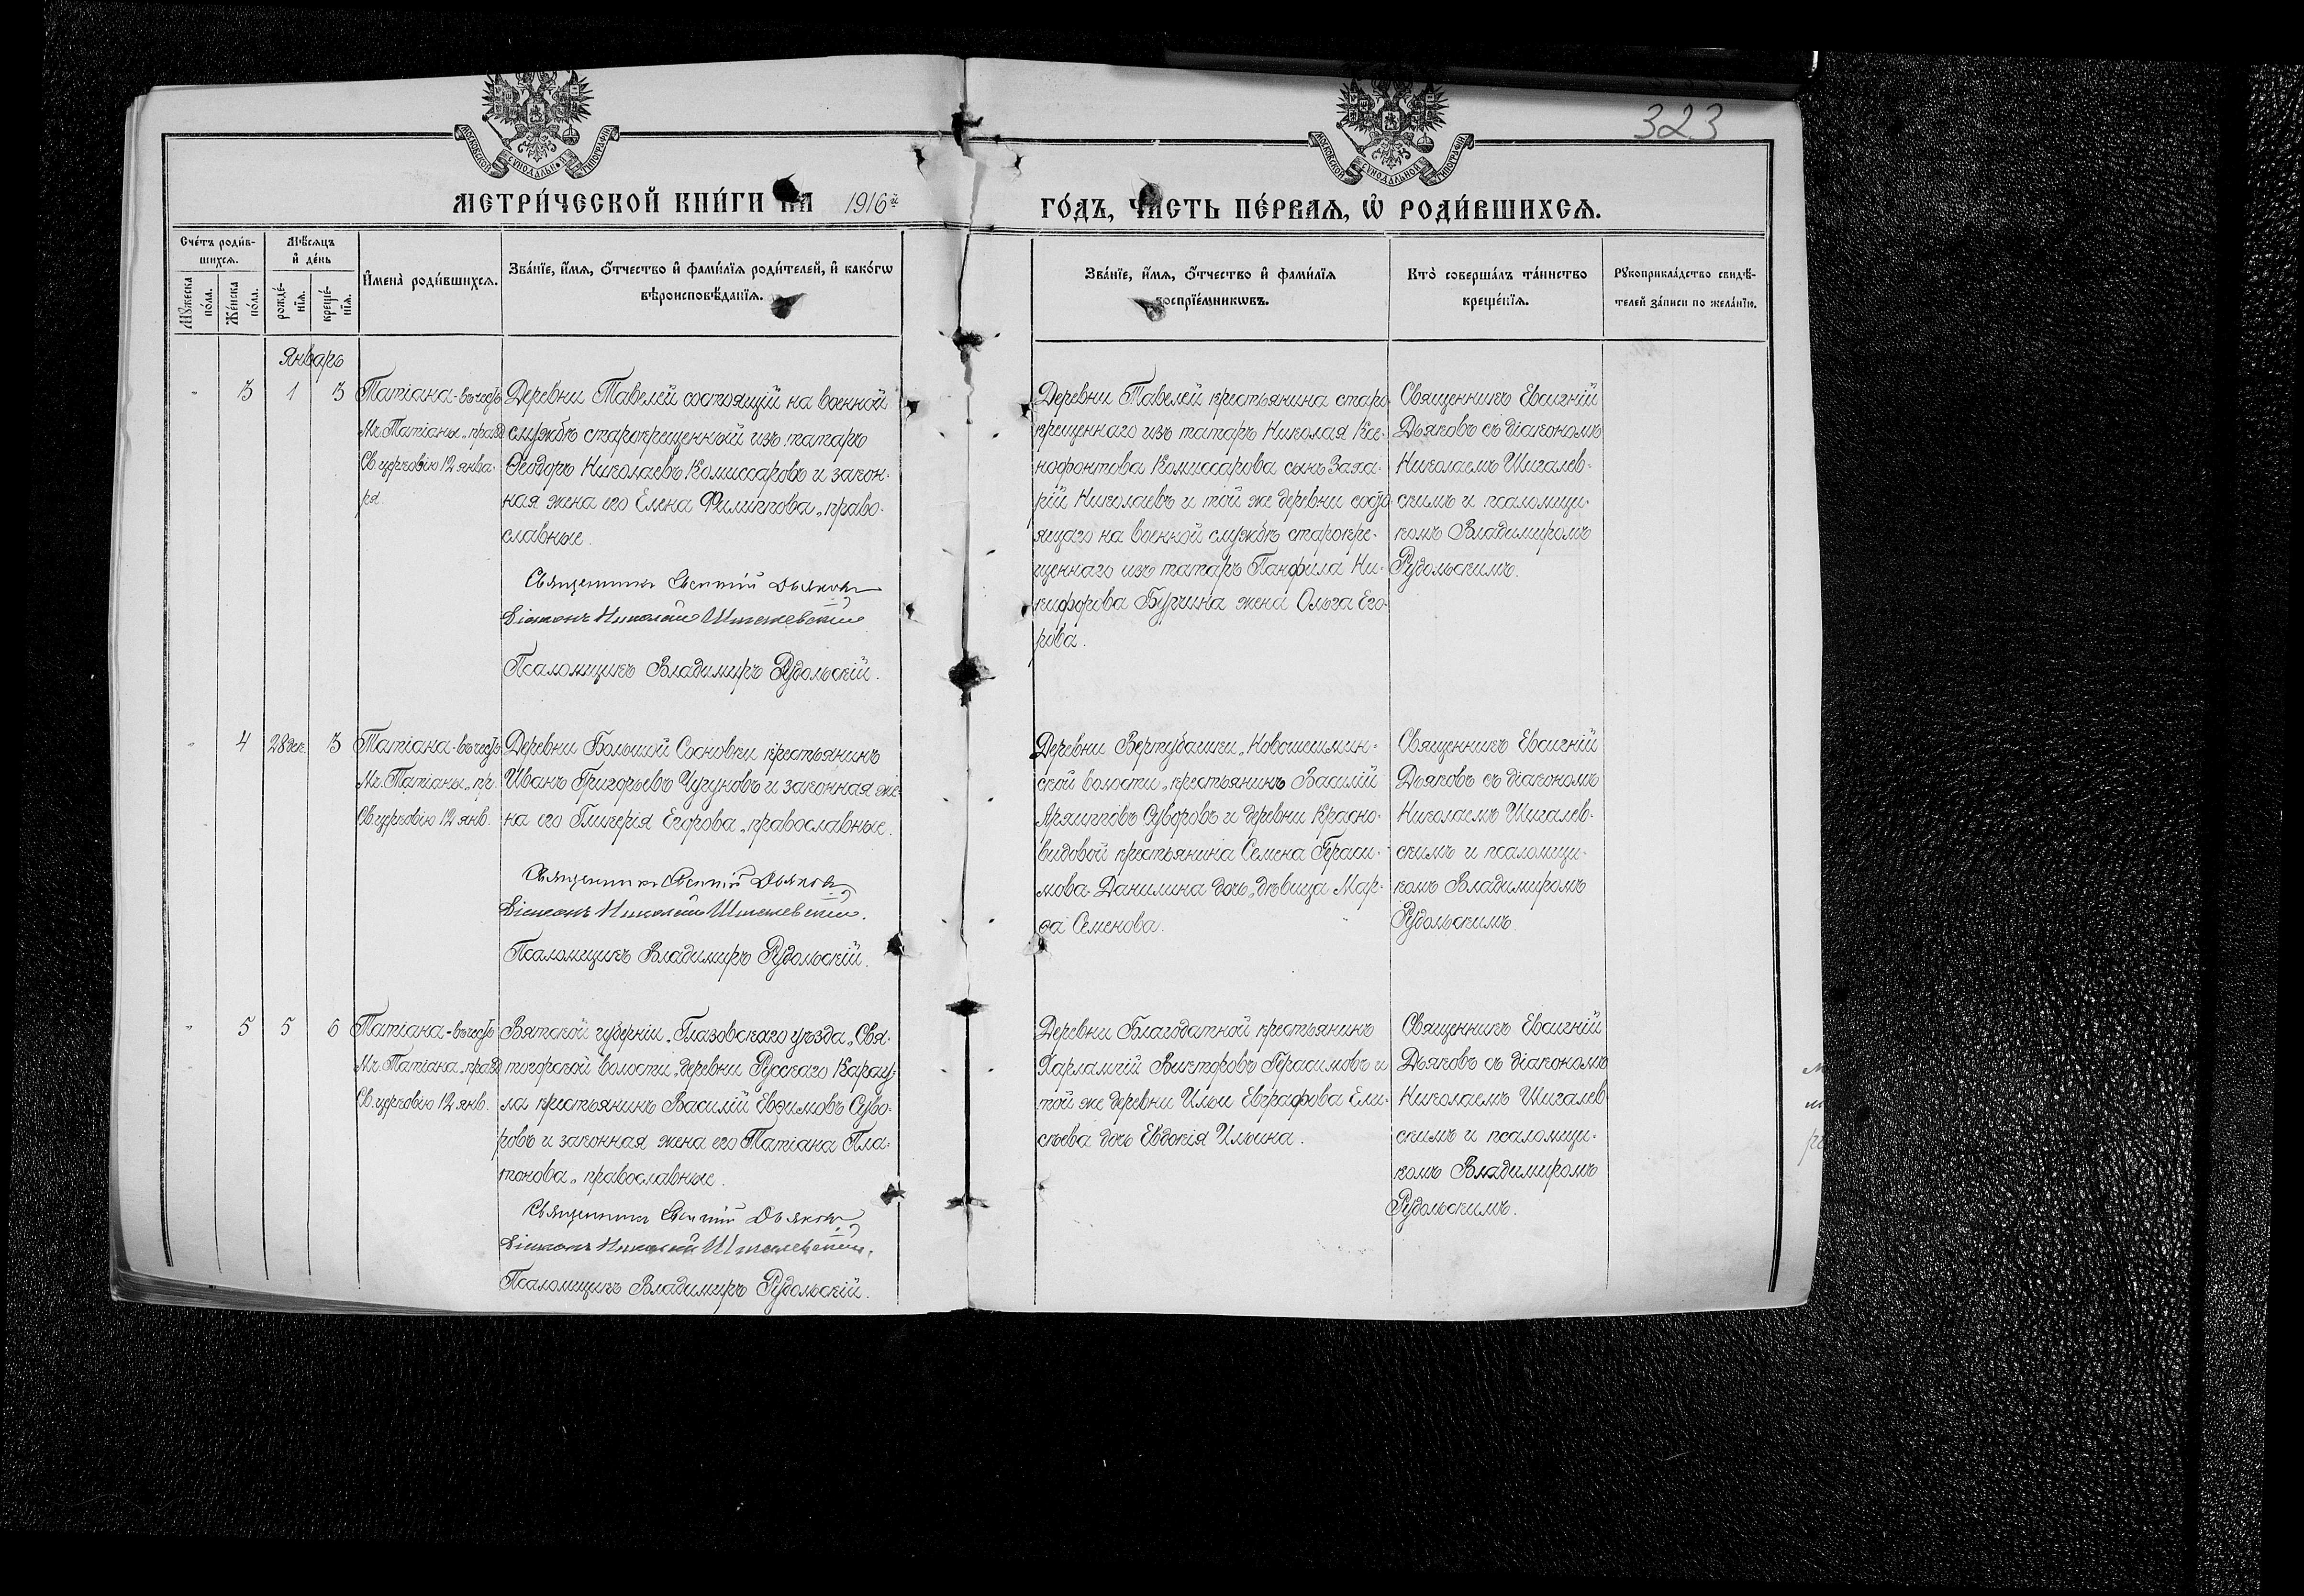 323
МОСКОВСКОЙ СУНОДАЛЬНОЙ ТИПОГРАФІИ
МОСКОВСКОЙ СУНОДАЛЬНОЙ ТИПОГРАФІИ
МЕТРИ́ЧЕСКОЙ КНИ́ГИ НА 1916й
ГО́ДЪ, ЧА́СТЬ ПЕ́РВАѦ, Ѡ РОДИ́ВШИХСѦ.
Сче́тъ роди́в-
шихсѧ.
Мѣ́сѧцъ
и҆ де́нь
Мꙋ́жеска
по́ла.
Же́нска
по́ла.
рожде́-
нїѧ.
креще́-
нїѧ.
И҆мена̀ роди́вшихсѧ.
Зва́нїе, и҆́мѧ, ѻ҆́тчество и҆ фами́лїѧ роди́телей, и҆ како́гѡ
вѣроисповѣ́данїѧ.
Зва́нїе, и҆́мѧ, ѻ҆́тчество и҆ фами́лїѧ
воспрїе́мникѡвъ.
Кто̀ соверша́лъ та́инство
креще́нїѧ.
Рꙋкоприкла́дство свидѣ́-
телей за́писи по жела́нїю.
Январь
- 3 1 3
Татіана-въ честь
Мч. Татіаны, празд
Св. церковію 12 янва-
ря.
Деревни Тавелей состоящій на военной
службѣ старокрещенный изъ татаръ
Ѳеодоръ Николаевъ Комиссаровъ и закон-
ная жена его Елена Филиппова, право-
славные.
Священникъ Евгеній Дьяковъ
Діаконъ Николай Шигалевскій
Псаломщикъ Владимиръ Рудольскій.
Деревни Тавелей крестьянина старо
крещеннаго изъ татаръ Николая Ксе-
нофонтова Комиссарова сынъ Заха-
рій Николаевъ и той же деревни состо
ящаго на военной службѣ старокре-
щеннаго изъ татаръ Панфила Ни-
кифорова Бурчина жена Ольга Его-
рова.
Священникъ Евгеній
Дьяковъ съ діакономъ
Николаемъ Шигалев-
скимъ и псаломщи-
комъ Владимиромъ
Рудольскимъ.
- 4 28 дек. 3
Татіана-въ честь
Мч. Татіаны, пр.
Св. церковію 12 янв.
Деревни Большой Сосновки крестьянинъ
Иванъ Григорьевъ Чугуновъ и законная же-
на его Гликерія Егорова, православные.
Священникъ Евгеній Дьяковъ
Діаконъ Николай Шигалевскій.
Псаломщикъ Владимиръ Рудольскій.
Деревни Вертубашки, Новошешмин-
ской волости, крестьянинъ Василій
Суворовъ и деревни Красно-
видовой крестьянина Семена Гераси-
мова Данилина дочь, дѣвица Мар-
ѳа Семенова.
Священникъ Евгеній
Дьяковъ съ діакономъ
Николаемъ Шигалев-
скимъ и псаломщи-
комъ Владимиромъ
Рудольскимъ.
- 5 5 6
Татіана-въ честь
Мч. Татіана, празд
Св. церковію 12 янв.
Вятской губерніи, Глазовскаго уѣзда, Свя-
тогорской волости, деревни Русскаго Карау-
ла крестьянинъ Василій Евѳимовъ Суво-
ровъ и законная жена его Татіана Пла-
тонова, православные.
Священникъ Евгеній Дьяковъ
Діаконъ Николай Шигалевскій.
Псаломщикъ Владимиръ Рудольскій.
Деревни Благодатной крестьянинъ
Харлампій Викторовъ Герасимовъ и
той же деревни Ильи Евграфова Ели-
сѣева дочь Евдокія Ильина.
Священникъ Евгеній
Дьяковъ съ діакономъ
Николаемъ Шигалев-
скимъ и псаломщи-
комъ Владимиромъ
Рудольскимъ.